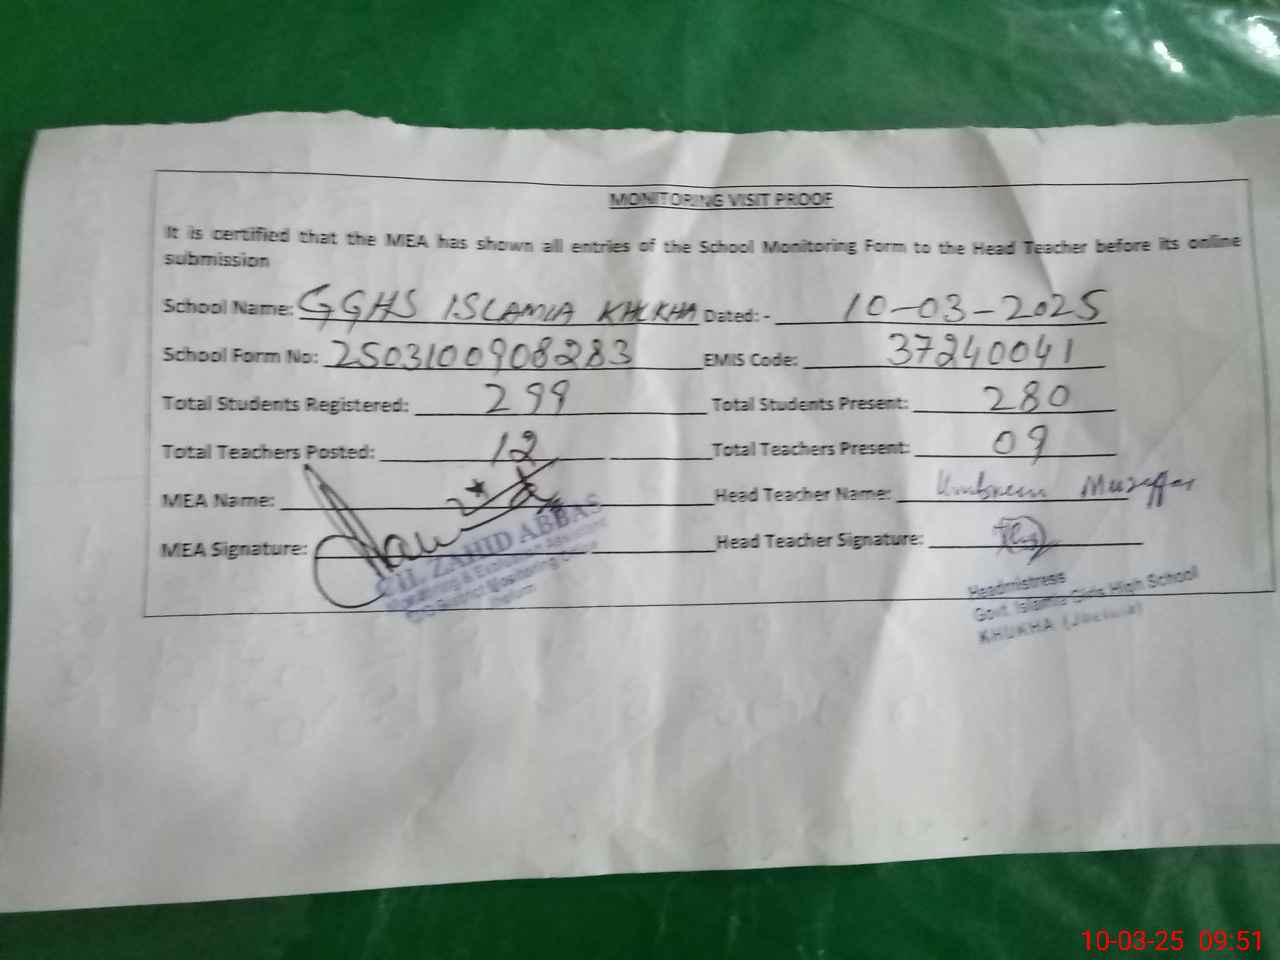 MONITORING VISIT PROOF
It is certified that the MEA has shown all entries of the School Monitoring Form to the Head Teacher before its online
submission
School Name: GGHS ISLAMIA KHUKHA Dated: - 10-03-2025
School Form No: 2503100908283 EMIS Code: 37240041
Total Students Registered: 299 Total Students Present: 280
Total Teachers Posted: 12 Total Teachers Present: 09
MEA Name: Head Teacher Name: Muzaffar
MEA Signature: Head Teacher Signature:
CH. ZAHID ABBAS
Monitoring & Evaluation
District Monitoring
Headmistress
Govt. Islamia Girls High School
KHUKHA (Jhelum)
10-03-25 09:51